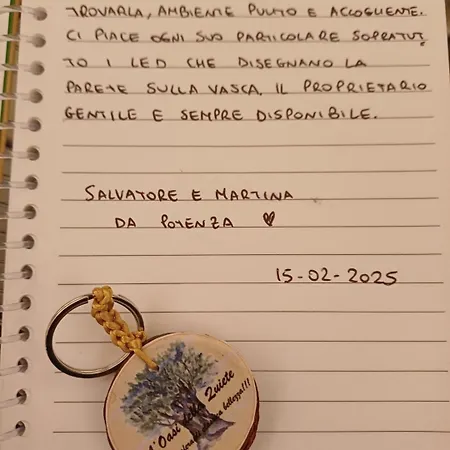 TROVARLA, AMBIENTE PULITO E ACCOGLIENTE.
CI PIACE OGNI SUO PARTICOLARE SOPRATUT
TO I LED CHE DISEGNANO LA
PARETE SULLA VASCA. IL PROPRIETARIO
GENTILE E SEMPRE DISPONIBILE.
SALVATORE E MARTINA
DA POTENZA ♥
15-02-2025
L'Oasi della Quiete
bellezza!!!